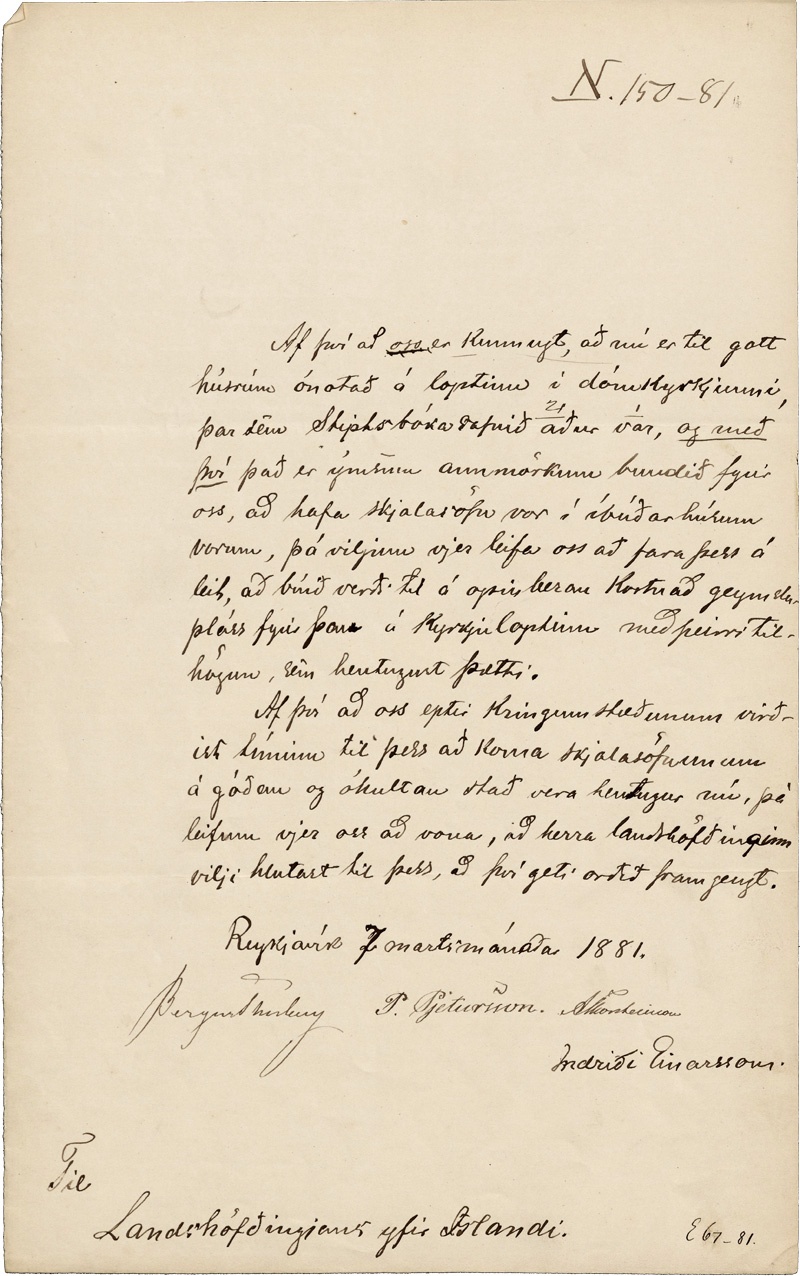 N. 150-81.
Af því að oss er Kunnugt, að nú er til gott
húsrúm ónotað á loptinu í dómkyrkjunni,
par sem Stiptsbókasafnið áður var, og með
því það er ýmsum annmörkum bundið fyrir
oss, að hafa skjalasöfn vor í íbúðarhúsum
vorum, þá viljum vjer leifa oss að fara þess á
leit, að búið verði til á opinberan kostnað geymslu-
pláss fyrir þau á Kyrkjuloptinu með þeirri til-
högun, sem hentugust þætti.
Af því að oss eptir Kringumstæðunum virð-
ist tíminn til þess að koma skjalasöfnunum
á góðan og óhultan stað vera hentugur nú, þá
leifum vjer oss að vona, að herra landshöfðinginn
vilji hlutast til þess, að því geti orðið framgengt.
Reykjavík 7 martsmánaðar 1881.
Bergur Thorberg P. Pjetursson. ÁThorsteinson
Indriði Einarsson.
Til
Landshöfðingjans yfir Íslandi.
E 67-81.